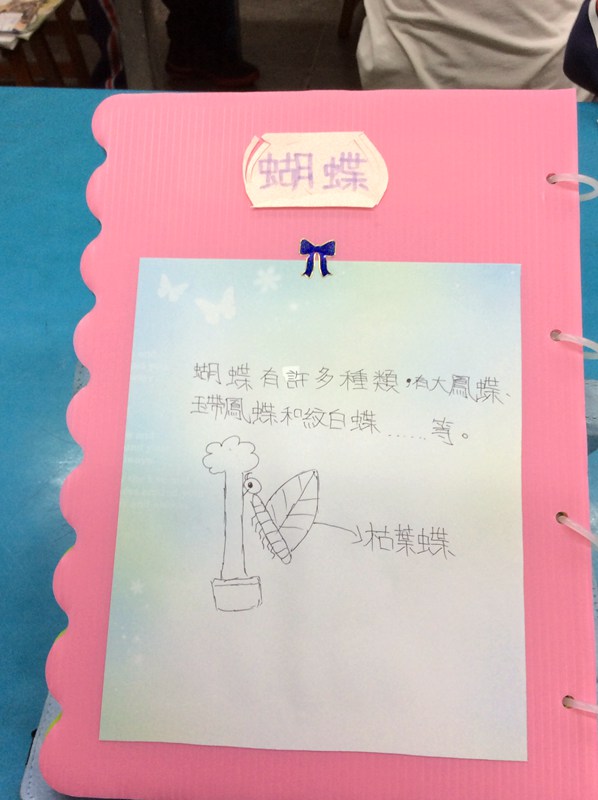 蝴蝶
蝴蝶有許多種類，有大鳳蝶、
玉帶鳳蝶和紋白蝶……等。
枯葉蝶